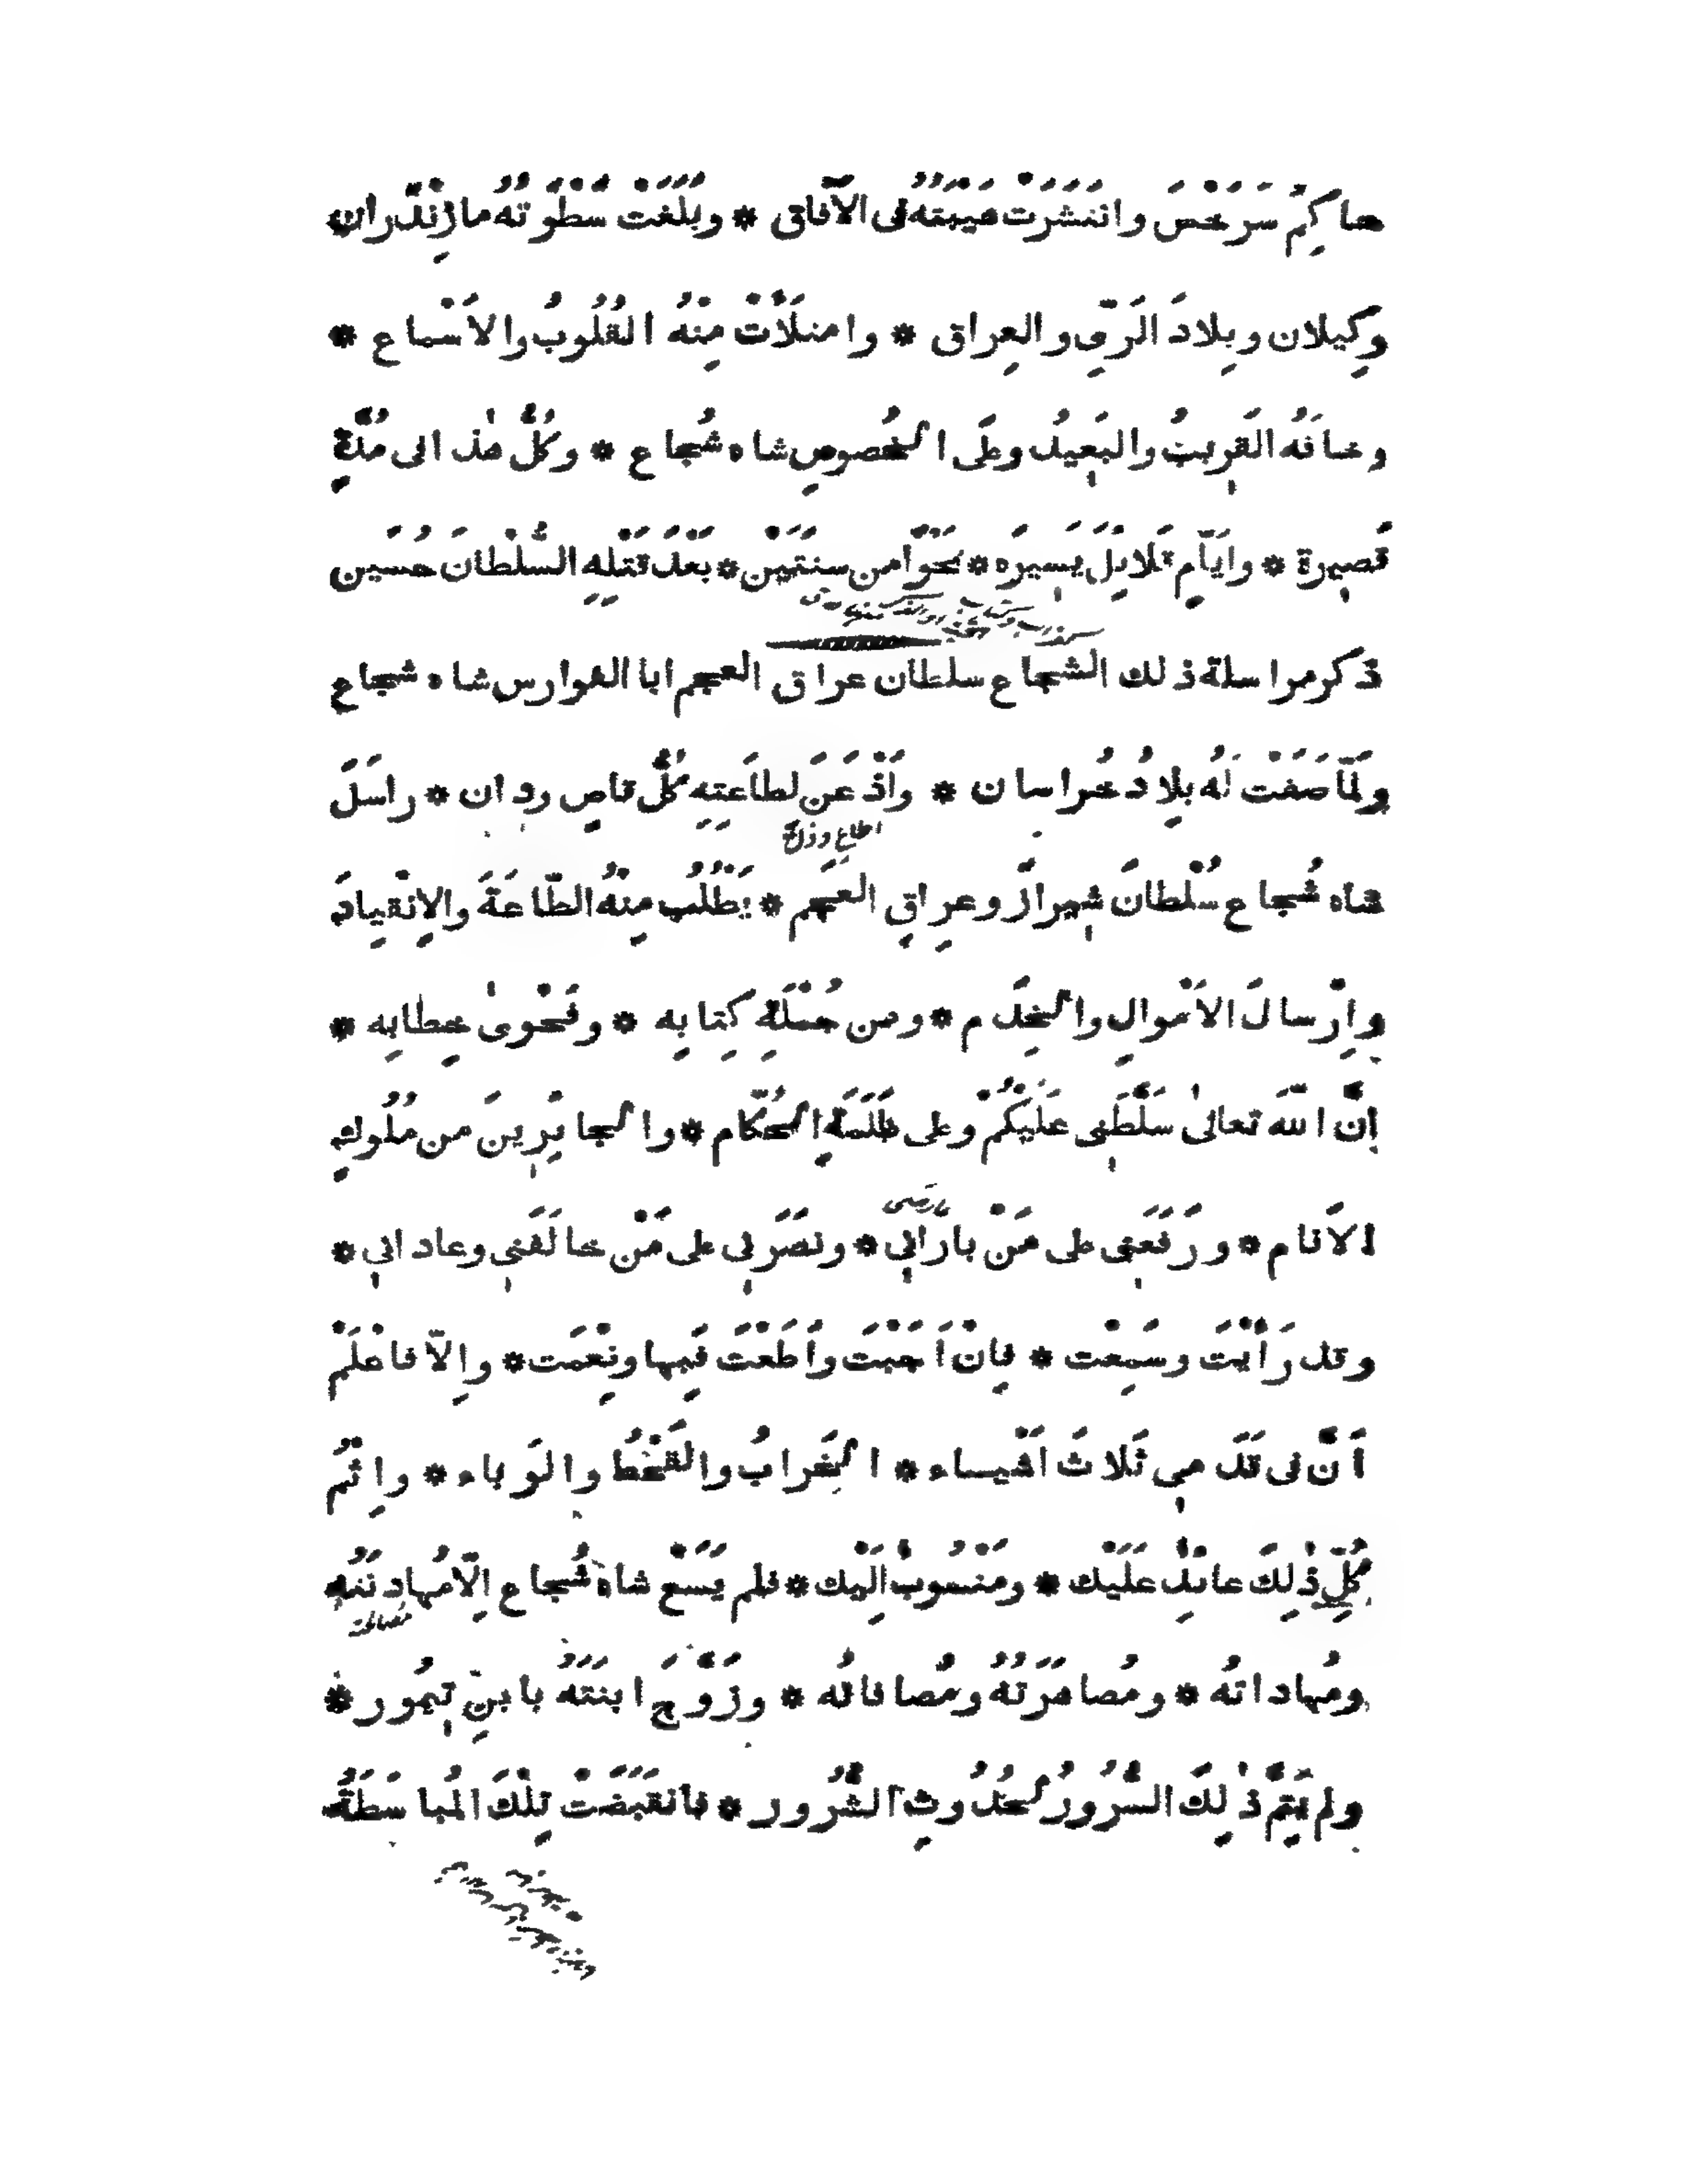 حاكِمُ سَرَخْسَ وانتشَرَتْ هَيْبَتُهُ فى الآفاق * وبَلَغَتْ سَطْوَتُهُ مازَنْدَران
وكِيلان وبِلادَ الرَىِّ والعِراق * وامتلَأَتْ مِنْهُ القُلُوبُ والاَسْماع *
وخافَهُ القَرِيبُ والبَعِيدُ وعلَى الخُصوصِ شاه شُجاع * وكُلُّ هٰذا فى مُدَّةٍ
قَصِيرة * واَيّامٍ قَلائِلَ يَسِيرَه * نَحْوًا من سنتَيْن * بَعْدَ قَتْلِهِ السُّلْطانَ حُسَين
ذكر مراسلة ذلك الشجاع سلطان عراق العجم ابا الفوارس شاه شجاع
ولَمّا صَفَتْ لَهُ بِلادُ خُراسان * واَذْعَنَ لِطاعَتِهِ كُلُّ قاصٍ ودان * راسَلَ
اطاع وذل
شاه شُجاع سُلْطانَ شِيرازَ وعِراقِ العَجَم * يَطْلُبُ مِنْهُ الطّاعَةَ والاِنْقِيادَ
واِرْسالَ الاَمْوالِ والخِدَم * ومن جُمْلَةِ كِتابِه * وفَحْوىٰ خِطابِه *
اِنَّ اللّٰهَ تعالىٰ سَلَّطَنِى عَلَيْكُمْ وعلى ظَلَمَةِ الحُكّام * والجائِرِينَ من مُلُوكِ
الاَنام * ورَفَعَنِى على مَنْ بارانِى * ونَصَرَنِى على مَنْ خالَفَنِى وعادانِى *
وقد رَأَيْتَ وسَمِعْت * فاِنْ اَجَبْتَ واَطَعْتَ فَبِها ونِعْمَت * واِلّا فاعْلَمْ
اَنَّ فى قَدَمِى ثَلاثَ اَشْيساء * الخَرابُ والقَحْطُ والوَباء * واِثْمُ
كُلِّ ذٰلِكَ عائِدٌ عَلَيْك * ومَنْسُوبٌ اِلَيْك * فلم يَسَعْ شاه شُجاع اِلّا مُهادَنَتُه
مصالحة
ومُهاداتُه * ومُصاهَرَتُهُ ومُصافاتُه * وزَوَّجَ ابنَتَهُ بابنِ تِيمُور *
ولم يَتِمَّ ذٰلِكَ السُّرُورُ لِحُدُوثِ الشُّرُور * فانقَبَضَتْ تِلْكَ المُباسَطَةُ